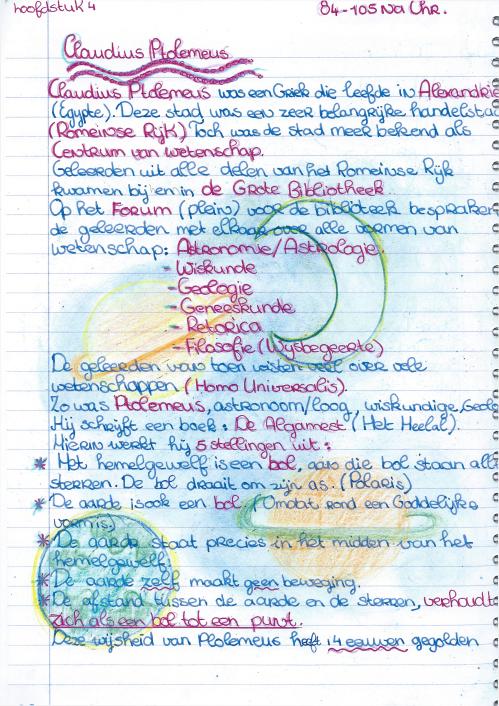 hoofdstuk 4
84-105 Na Chr.
Claudius Ptolemeus
Claudius Ptolemeus was een Griek die leefde in Alexandrië
(Egypte). Deze stad was een zeer belangrijke handelsstad
(Romeinse Rijk) Toch was de stad meer bekend als
Centrum van wetenschap.
Geleerden uit alle delen van het Romeinse Rijk
kwamen bij en in de Grote Bibliotheek
Op het Forum (plein) voor de biblioteek bespraken
de geleerden met elkaar over alle vormen van
wetenschap: Astronomie/Astrologie
- Wiskunde
- Geologie
- Geneeskunde
- Retorica
- Filosofie (Wijsbegeerte)
De geleerden van toen wisten veel over vele
wetenschappen (Homo Universalis).
Zo was Ptolemeus, astronoom/loog, wiskundige,
Hij schrijft een boek: De Algamest (Het Heelal).
Hierin werkt hij 5 stellingen uit:
* Het hemelgewelf is een bol, aan die bol staan alle
sterren. De bol draait om zijn as. (Polaris)
* De aarde is ook een bol (Omdat rond een Goddelijke
vorm is)
* De aarde staat precies in het midden van het
hemelgewelf
* De aarde zelf maakt geen beweging.
* De afstand tussen de aarde en de sterren, verhoudt
zich als een bol tot een punt.
Deze wijsheid van Ptolemeus heeft 14 eeuwen gegolden